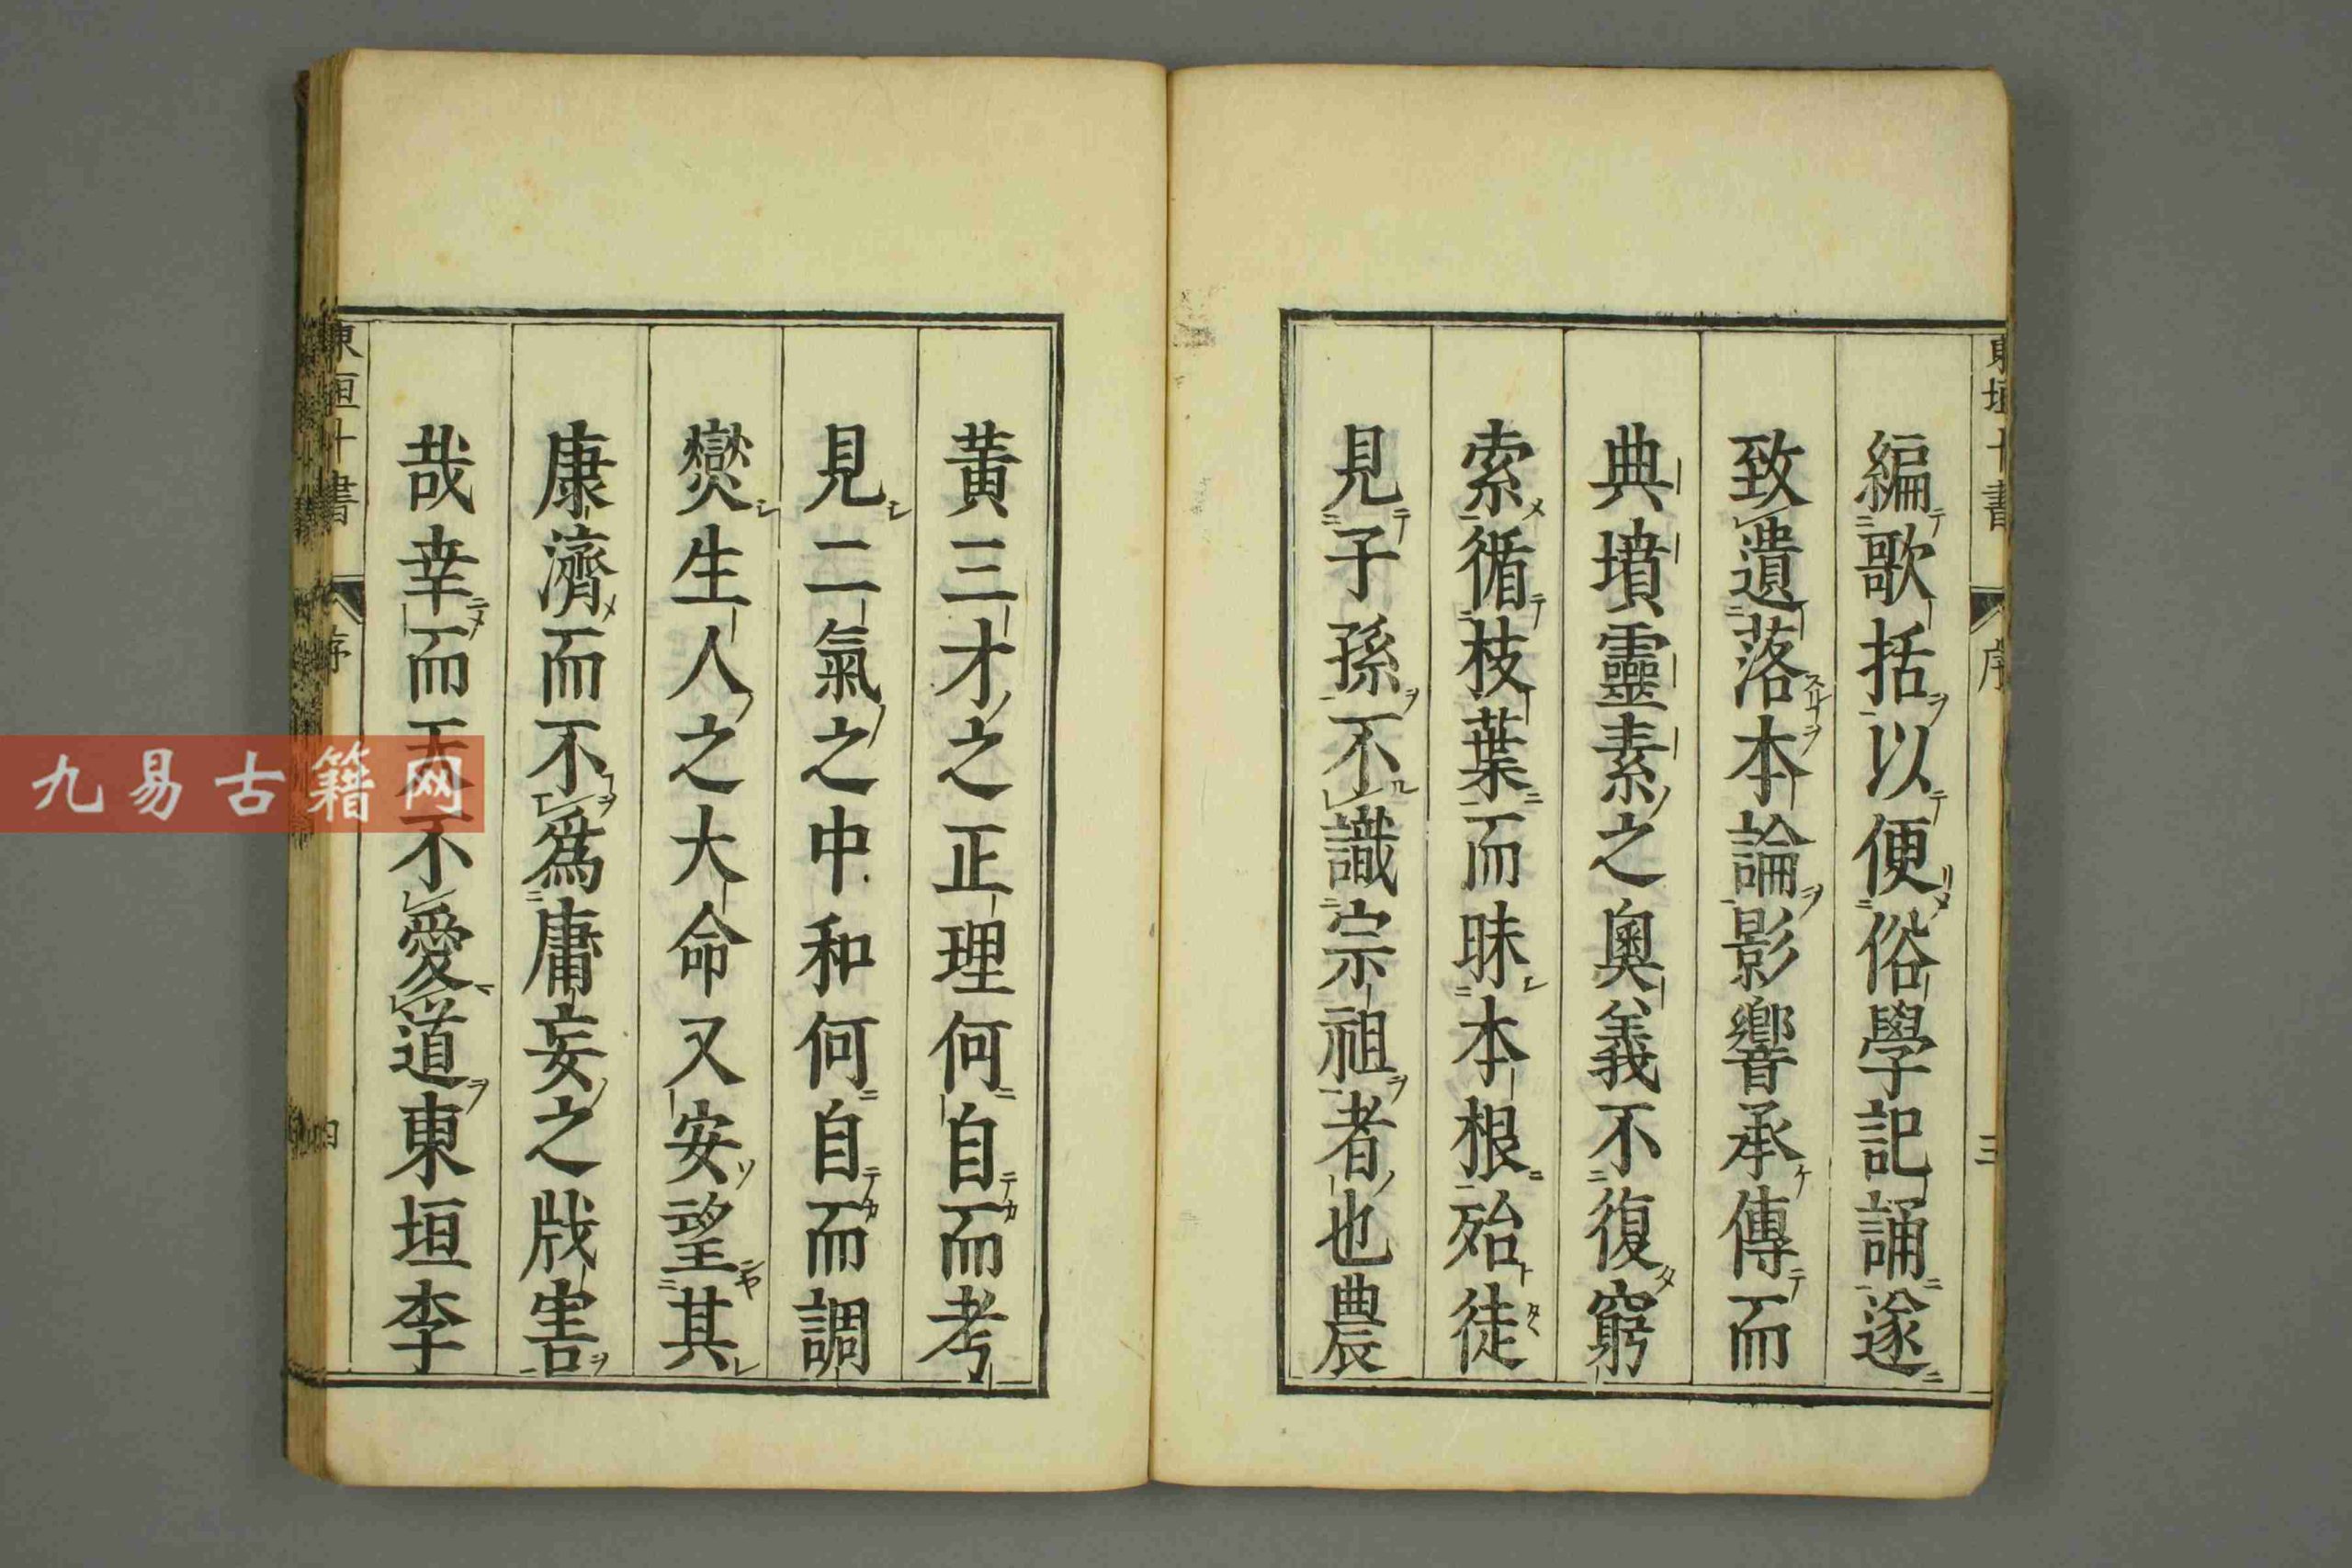 東垣十書 序 三
編歌括以便俗學記誦遂
致遺落本論影響承傳而
典墳靈素之奧義不復窮
索循枝葉而昧本根殆徒
見子孫不識宗祖者也農
黃三才之正理何自而考
見二氣之中和何自而調
燮生人之大命又安望其
康濟而不爲庸妄之戕害
哉幸而天不愛道東垣李
東垣十書 序 四
九易古籍网